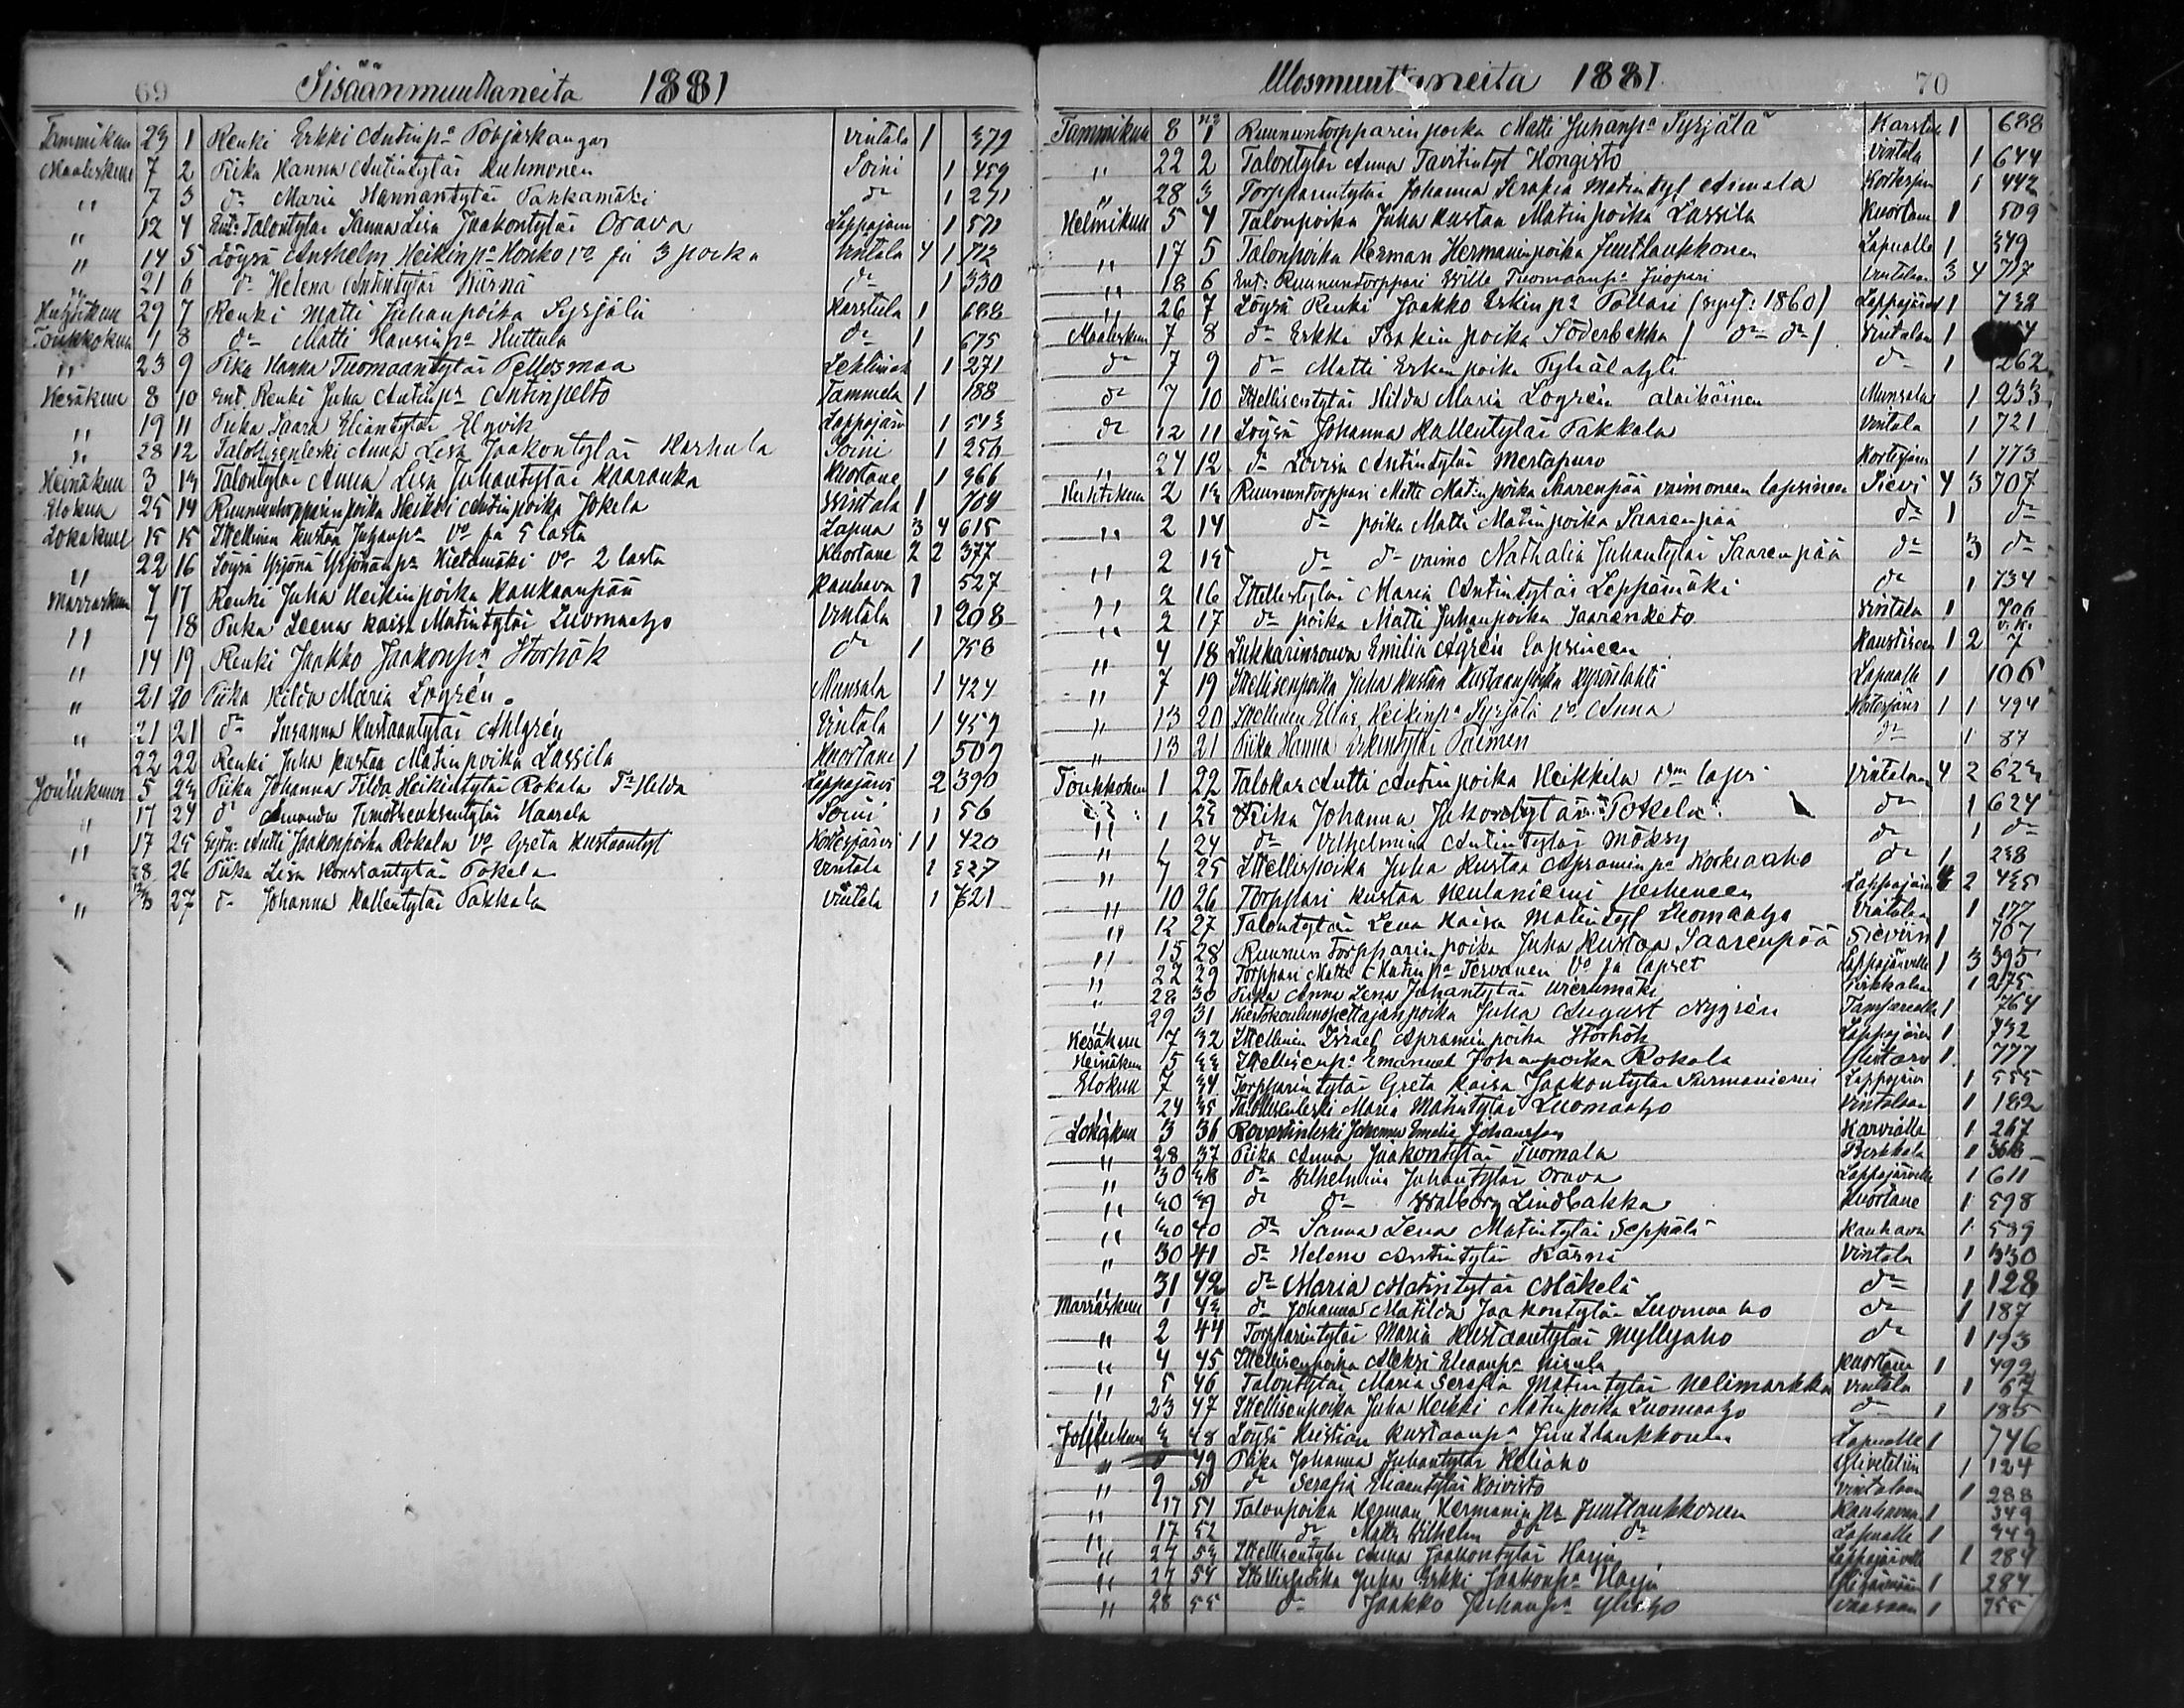 69 Sisäänmuuttaneita 1881
Tammikuu 23 1 Renki Erkki Antinpa Pohjaskangas Vintala 1 379
Maaliskuu 7 2 Piika Hanna Antintytär Kuhmonen Soini 1 459
" 7 3 do Maria Hermantytär Pakkamäki do 1 271
" 12 4 Ent: Talontytär Sanna Lisa Jaakontytär Orava Lappajärvi 1 571
" 14 5 Löysä Anshelm Heikinpa Honko va ja 3 poika Vintala 4 1 712
" 21 6 do Helena Antintytär Kärnä do 1 330
Huhtikuu 29 7 Renki Matti Juhanpoika Syrjälä Karstula 1 688
Toukokuu 1 8 do Matti Hansinpa Huttula do 1 675
" 23 9 Piika Hanna Tuomaantytär Pellosmaa Lehtimäk 1 271
Kesäkuu 8 10 Ent. Renki Juha Antinpa Antinpelto Tammela 1 188
" 19 11 Piika Saara Eliantytär Elgvik Lappajärv 1 513
" 28 12 Talollisenleski Anna Lisa Jaakontytär Harhula Soini 1 256
Heinäkuu 3 13 Talontytär Anna Lisa Juhantytär Haaranka Kuortane 1 366
Elokuu 25 14 Ruununtorpparinpoika Heikki Antinpoika Jokela Vintala 1 704
Lokakuu 15 15 Itellinen Kustaa Juhanpa Vo ja 5 lasta Lapua 3 4 615
" 22 16 Löysä Yrjönä Yrjönänpa Hietamäki Vo 2 lasta Kuortane 2 2 377
Marraskuu 7 17 Renki Juha Heikinpoika Kaukaanpää Kauhava 1 527
" 7 18 Piika Leena Kaisa Matintytär Luomaaho Vintala 1 208
" 14 19 Renki Jaakko Jaakonpa Storhök do 1 758
" 21 20 Piika Hilda Maria Logrén. Munsala 1 424
" 21 21 do Susanna Kustaantytär Ahlgrén Vintala 1 459
" 22 22 Renki Juha Kustaa Matinpoika Lassila Kuortane 1 509
Joulukuun 5 23 Piika Johanna Tilda Heikintytär Rokala Tr Hilda Lappajärvi 2 390
" 17 24 do Amanda Timotheuksentytär Haarala Soini 1 56
" 17 25 Antti Jaakonpoika Rokala Vo Greta Kustaantyt Kortesjärvi 1 1 420
" 28 26 Piika Lisa Konstantytär Pokela Vintala 1 327
" 27 do Johanna Kallentytär Takkala Vintala 1 721
Ulosmuuttaneita 1881. 70
Tammikuu 8 1 Ruununtorpparin poika Matti Juhanpa Syrjälä Karstul 1 688
" 22 2 Talontytär Anna Tavitintyt Hongisto Vintala 1 644
" 28 3 Torpparintytär Johanna Serafia Matintyt Aimala Kortesjärv 1 442
Helmikuu 5 4 Talonpoika Juha Kustaa Matinpoika Lassila Kuortane 1 509
" 17 5 Talonpoika Herman Hermaninpoika Juutlaukkonen Lapualle 1 349
" 18 6 Ent: Ruununtorppari Ville Tuomaanpa Juopari Vintalaan 3 4 717
" 26 7 Löysä Renki Jaakko Erkinpa Pollari (synt: 1860) Lappajärvi 1 738
Maaliskuu 7 8 do Erkki Isakinpoika Söderbakka ( do do ) Vintalaan 1
do 7 9 do Matti Erkinpoika do 1 262
do 7 10 Itellisentytär Hilda Maria Logrén alaikäinen Munsala 1 233
do 12 11 Löysä Johanna Kallentytär Takkala Vintala 1 721
" 24 12 do Lovisa Antintytär Mertapuro Kortesjärv 1 773
Huhtikuu 2 13 Ruununtorppari Matti Matinpoika Saarenpää vaimoneen lapsineen Sievi 4 3 707
" 2 14 do poika Matti Matinpoika Saarenpää do 1 do
" 2 15 do do vaimo Nathalia Juhantytär Saarenpää do 3 do
" 2 16 Itellistytär Maria Antintytär Leppämäki do 1 734
" 2 17 do poika Matti Juhanpoika Saarenketo Vintala 1 706
" 4 18 Lukkarinrouva Emilia Ågrén lapsineen Kaustiseen 1 2 7
" 7 19 Itellisenpoika Juha Kustaa Kustaanpoika Lapualle 1 106
" 13 20 Itellinen Elias Heikinpa Syrjälä vo Anna Kortesjärv 1 1 494
" 13 21 Piika Hanna Erkintytär Paimen do 1 87
Toukokuu 1 22 Talokas Antti Antinpoika Heikkilä lapsi Vintalaan 4 2 623
" 1 23 Piika Johanna Jakontytär Pokela do 1 624
" 1 24 do Vilhelmina Antintytär Möksy do 1 do
" 7 25 Itellispoika Juha Kustaa Apraminpa Korkiaaho do 1 238
" 10 26 Torppari Kustaa Neulaniemi perheneen Lappajärv 4 2 435
" 12 27 Talontytär Lena Kaisa Matintyt Luomaaho Vintalaan 1 177
" 15 28 Ruunun Torpparinpoika Juha Kustaa Saarenpää Sieviin 1 707
" 22 29 Torppari Matti Matinpa Tervanen Vo ja lapset Lappajärvelle 1 3 395
" 28 30 Piika Anna Lena Juhantytär Wierumäki Pirkkalaan 1 275
" 29 31 Kiertokoulunopettajanpoika Juha August Nygrén Tampereelle 1 764
Kesäkuu 7 32 Itellinen Israel Apraminpoika Storhök Lappajärv 1 732
Heinäkuu 5 33 Itellisenpa Emanuel Johanpoika Rokala Ylistaro 1 777
Elokuu 7 34 Torpparintytär Greta Kaisa Jaakontytär Surmaniemi Lappajärv 1 555
24 35 Talollisenleski Maria Matintytär Luomaaho Vintalaan 1 182
Lokakuu 3 36 Johanna Emelie Johansson Karvialle 1 267
" 28 37 Piika Anna Jaakontytär Tuomala Pirkkala 1 366
" 30 38 do Vilhelmina Juhantytär Orava Lappajärvelle 1 611
" 30 39 do do Walborg Lindbakka Kuortane 1 598
" 30 40 do Sanna Lena Matintytär Seppälä Kauhava 1 589
" 30 41 do Helena Antintytär Kärnä Vintala 1 330
" 31 42 do Maria Matintytär Mäkelä do 1 128
Marraskuu 1 43 do Johanna Matilda Jaakontytär Luomaaho do 1 187
" 2 44 Torpparintytär Maria Kustaantytär Myllyaho do 1 193
" 4 45 Itellisenpoika Aleksi Eliaanpa Nisula Kuortane 1 499
" 5 46 Talontytär Maria Serafia Matintytär Nelimarkka Vintala 1 67
" 23 47 Itellisenpoika Juha Heikki Matinpoika Luomaaho do 1 185
Joulukuu 3 48 Löysä Kristian Kustaanpa Juutlaukkonen Lapualle 1 746
" 49 Piika Johanna Juhantytär Keliaho Ylivetelin 1 124
" 9 50 do Serafia Eliaantytär Koivisto Vintalaan 1 288
" 17 51 Talonpoika Herman Hermaninpa Juutlaukkonen Kauhavan 1 349
" 17 52 do Matts Wilhelm do do Lapualle 1 349
" 27 53 Itellisentytär Anna Jaakontytär Harju Lappajärvelle 1 284
" 27 54 Itellispoika Juha Erkki Jaakonpa Harju 1 284
" 28 55 do Jaakko Juhanpa Yliaho Vaasaan 1 755